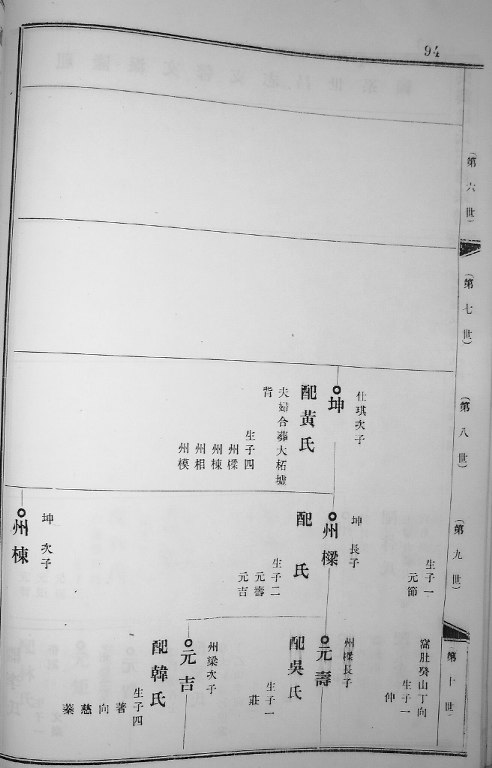 94
（第六世）
（第七世）
（第八世）
仕琪次子
坤
配黃氏
夫婦合葬大柘墟
背
生子四
州樑
州棟
州相
州模
（第九世）
生子一
元節
坤長子
州樑
配 氏
生子二
元壽
元吉
坤次子
州棟
（第十世）
窩肚癸山丁向
生子一
仲
州樑長子
元壽
配吳氏
生子一
莊
州梁次子
元吉
配韓氏
生子四
著
向
慈